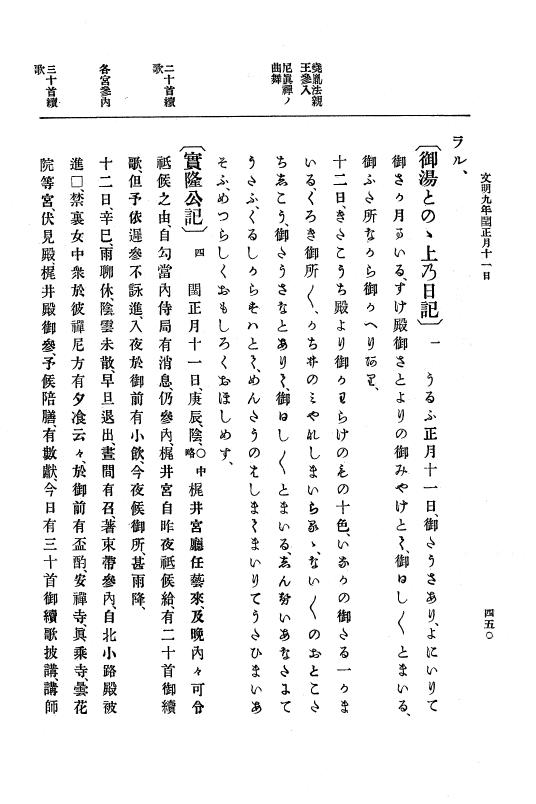 文明九年閏正月十一日
四五〇
堯胤法親
王參入
尼眞禪ノ
曲舞
二十首續
歌
各宮參內
三十首續
歌
ラル、
〔御湯とのゝ上乃日記〕 一 うるふ正月十一日、御さうさあり、よにいりて
御さか月まいる、すけ殿御さとよりの御みやけとて、御ひし〱とまいる、
御ふさ所なから御かへりあり、
十二日、きさこうち殿より御かわらけのものゝ十色、いなかの御さる一かま
いる、くろき御所〱、かち井のみやれしまいらるゝ、ない〱のおとこさ
ちゑこう、御さうさなとありて、御ひし〱とまいる、ゑん
うさふ、くるしからすそ
そふ、めつらしくおもしろくおほしめす、
〔實隆公記〕 四 閏正月十一日、庚辰、陰、〇中略 梶井宮廳任藝來、及晚內々可令
祗候之由、自勾當內侍局有消息、仍參內、梶井宮自昨夜祗候給、有二十首御續
歌、但予依遲參不詠進、入夜於御前有小飮、今夜候御所、甚雨降、
十二日、辛巳、雨聊休、陰雲未散、早旦退出、晝間有召、著束帶參內、自北小路殿被
進□、禁裏女中衆於彼禪尼方有夕飡云々、於御前有盃酌、安禪寺、眞乘寺、曇花
院等宮伏見殿梶井殿御參、予候陪膳、有數獻、今日有三十首御續歌披講、講師